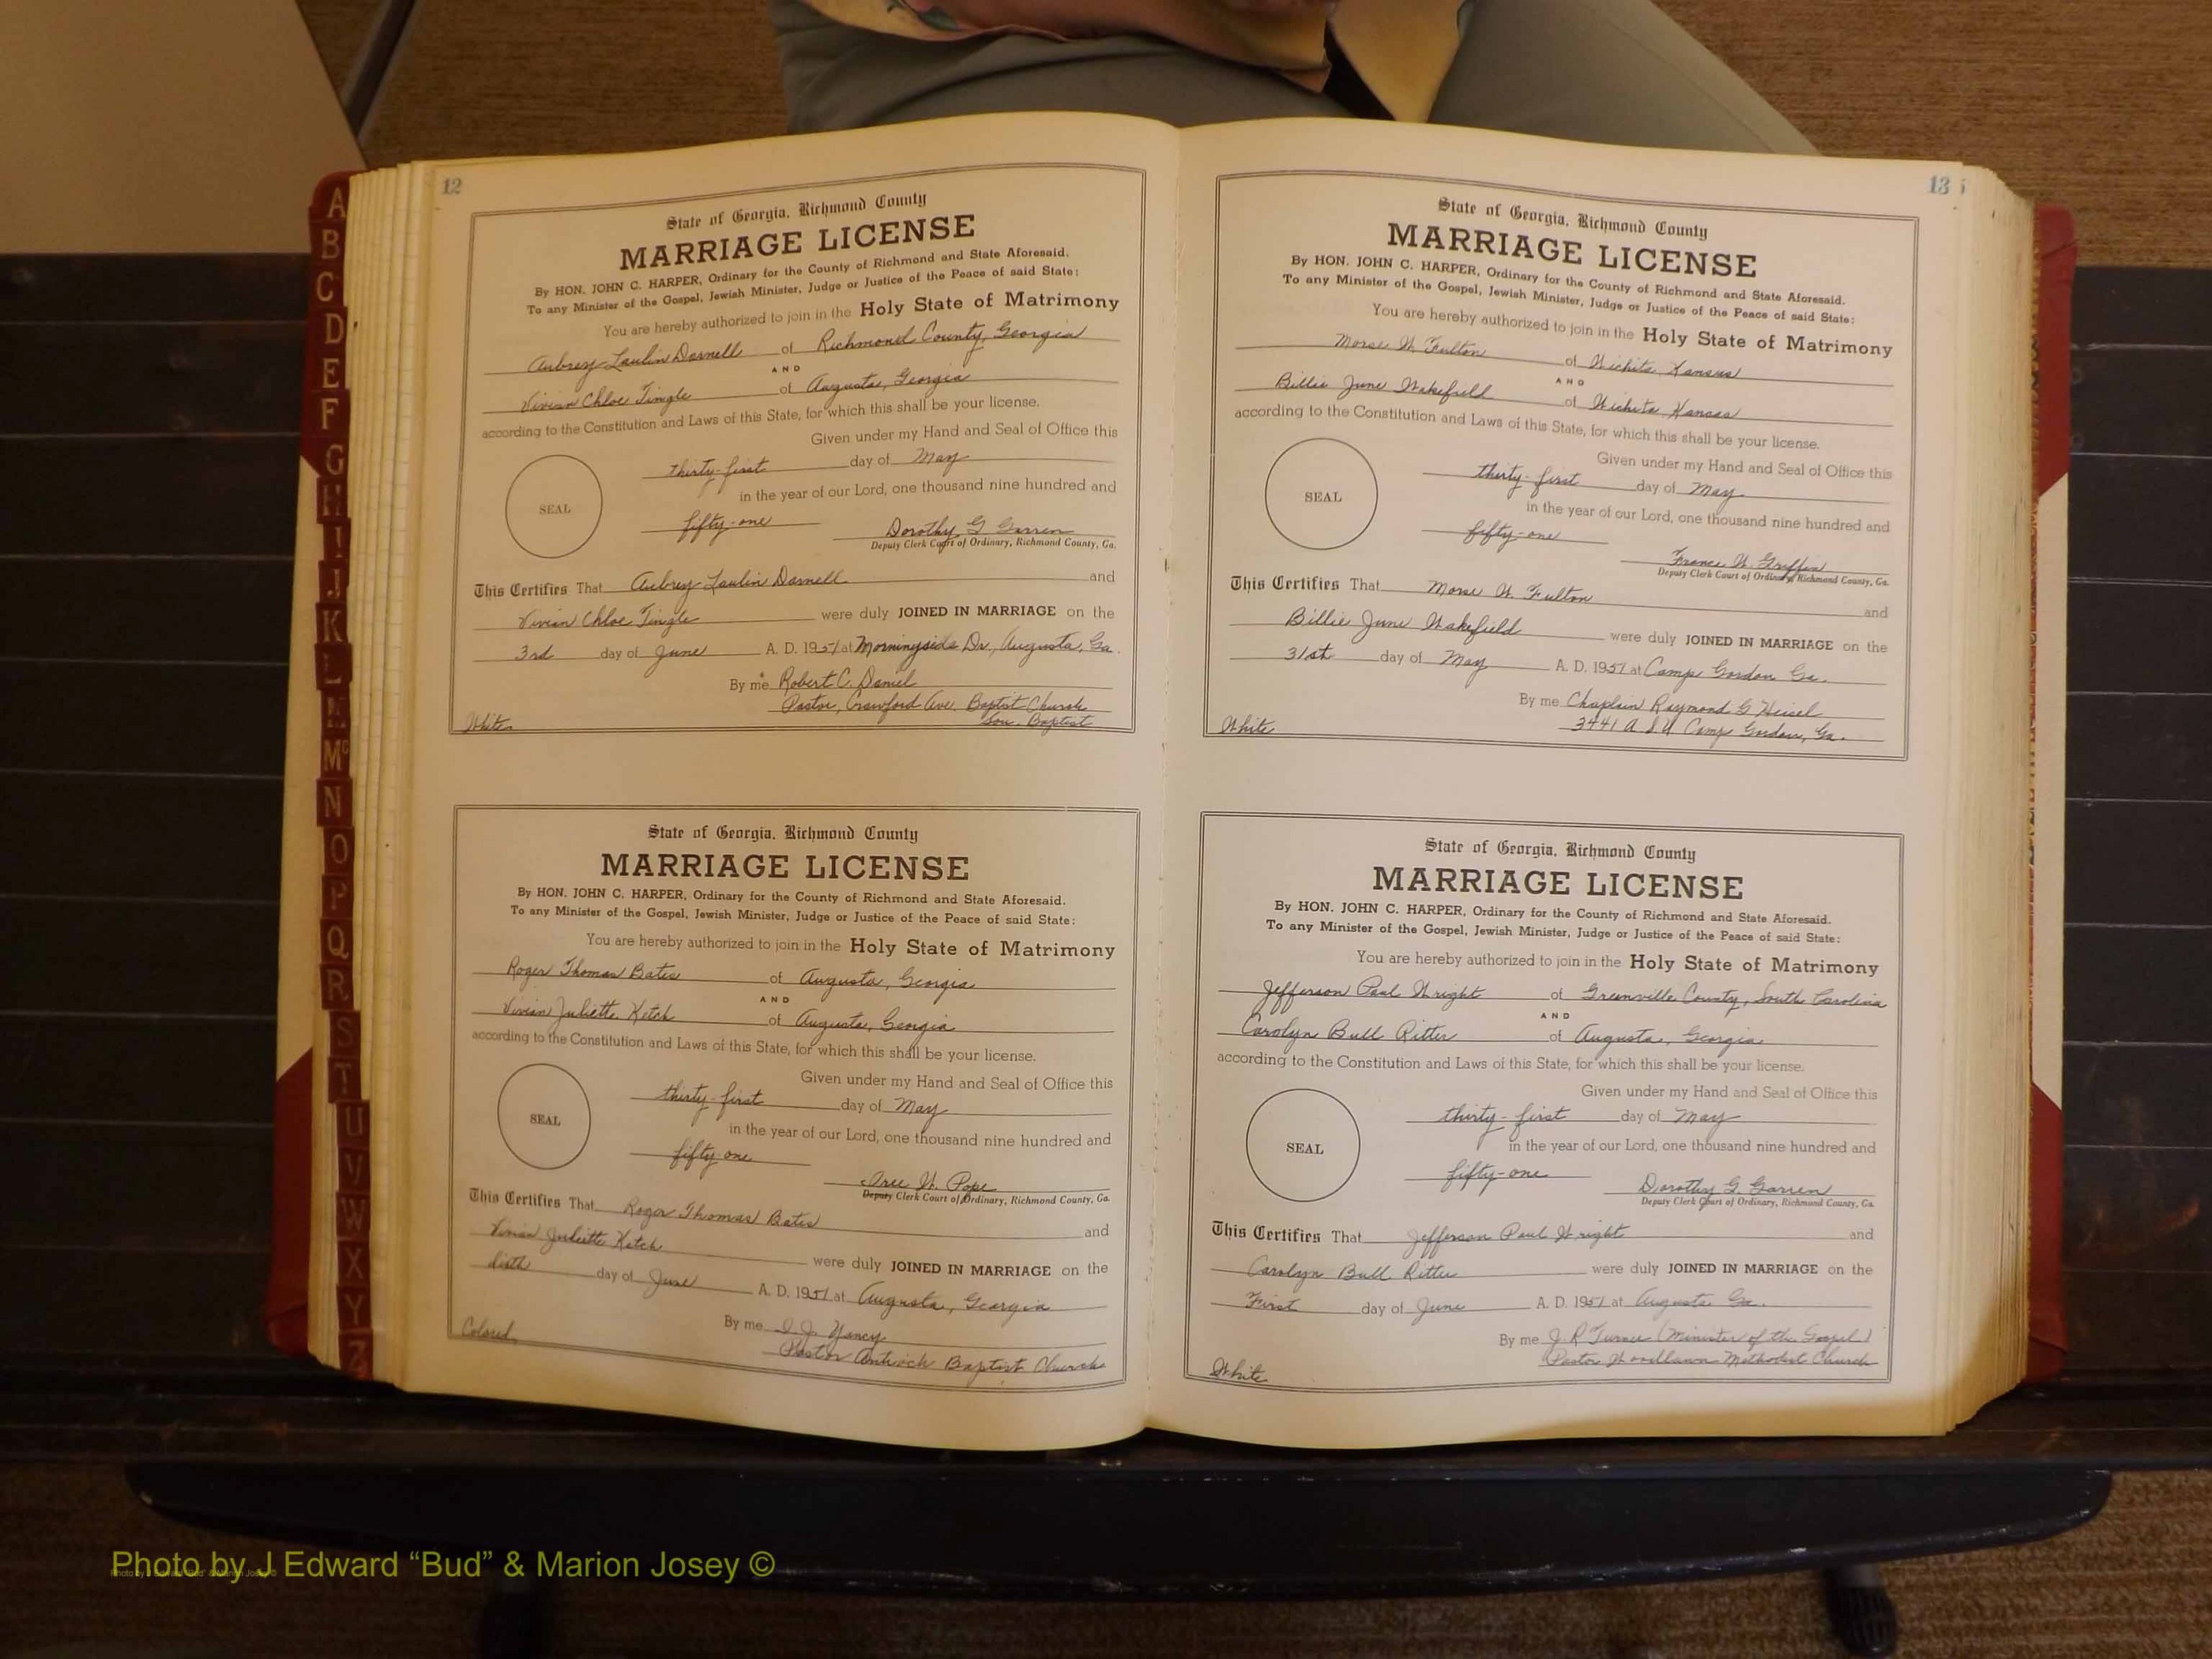 12
State of Georgia, Richmond County
MARRIAGE LICENSE
By HON. JOHN C. HARPER, Ordinary for the County of Richmond and State Aforesaid.
To any Minister of the Gospel, Jewish Minister, Judge or Justice of the Peace of said State:
You are hereby authorized to join in the Holy State of Matrimony
Aubrey Laulin Darnell of Richmond County, Georgia
AND
Vivian Chloe Tingle of Augusta, Georgia
according to the Constitution and Laws of this State, for which this shall be your license.
Given under my Hand and Seal of Office this
thirty-first day of May
in the year of our Lord, one thousand nine hundred and
SEAL
fifty-one Dorothy G Garren
Deputy Clerk Court of Ordinary, Richmond County, Ga.
This Certifies That Aubrey Laulin Darnell and
Vivian Chloe Tingle were duly JOINED IN MARRIAGE on the
3rd day of June A. D. 1951 at Morningside Dr., Augusta, Ga.
By me Robert C. Daniel
Pastor, Crawford Ave. Baptist Church
White Sou. Baptist
State of Georgia, Richmond County
MARRIAGE LICENSE
By HON. JOHN C. HARPER, Ordinary for the County of Richmond and State Aforesaid.
To any Minister of the Gospel, Jewish Minister, Judge or Justice of the Peace of said State:
You are hereby authorized to join in the Holy State of Matrimony
Roger Thomas Bates of Augusta, Georgia
AND
Vivian Juliette Ketch of Augusta, Georgia
according to the Constitution and Laws of this State, for which this shall be your license.
Given under my Hand and Seal of Office this
thirty-first day of May
SEAL
in the year of our Lord, one thousand nine hundred and
fifty-one
W. Pope
Deputy Clerk Court of Ordinary, Richmond County, Ga.
This Certifies That Roger Thomas Bates and
Vivian Juliette Ketch were duly JOINED IN MARRIAGE on the
sixth day of June A. D. 1951 at Augusta, Georgia
By me Yancy
Colored Pastor Antioch Baptist Church
13
State of Georgia, Richmond County
MARRIAGE LICENSE
By HON. JOHN C. HARPER, Ordinary for the County of Richmond and State Aforesaid.
To any Minister of the Gospel, Jewish Minister, Judge or Justice of the Peace of said State:
You are hereby authorized to join in the Holy State of Matrimony
Morse W. Fulton of Wichita Kansas
AND
Billie June Wakefield of Wichita Kansas
according to the Constitution and Laws of this State, for which this shall be your license.
Given under my Hand and Seal of Office this
thirty-first day of May
SEAL
in the year of our Lord, one thousand nine hundred and
fifty-one
W. Griffin
Deputy Clerk Court of Ordinary, Richmond County, Ga.
This Certifies That Morse W. Fulton and
Billie June Wakefield were duly JOINED IN MARRIAGE on the
31st day of May A. D. 1951 at Camp Gordon Ga.
By me Chaplain Raymond G Heisel
White 3441 A S U Camp Gordon, Ga.
State of Georgia, Richmond County
MARRIAGE LICENSE
By HON. JOHN C. HARPER, Ordinary for the County of Richmond and State Aforesaid.
To any Minister of the Gospel, Jewish Minister, Judge or Justice of the Peace of said State:
You are hereby authorized to join in the Holy State of Matrimony
Jefferson Paul Wright of Greenville County, South Carolina
AND
Carolyn Bull Ritter of Augusta, Georgia
according to the Constitution and Laws of this State, for which this shall be your license.
Given under my Hand and Seal of Office this
thirty-first day of May
SEAL
in the year of our Lord, one thousand nine hundred and
fifty-one Dorothy G. Garren
Deputy Clerk Court of Ordinary, Richmond County, Ga.
This Certifies That Jefferson Paul Wright and
Carolyn Bull Ritter were duly JOINED IN MARRIAGE on the
First day of June A. D. 1951 at Augusta Ga.
By me J. R. Turner (Minister of the Gospel)
White Pastor Woodlawn Methodist Church
A
B
C
D
E
F
G
H
I
J
K
L
M
Mc
N
O
P
Q
R
S
T
U
V
W
X
Y
Z
Photo by J Edward “Bud” & Marion Josey ©
Photo by J Edward “Bud” & Marion Josey ©